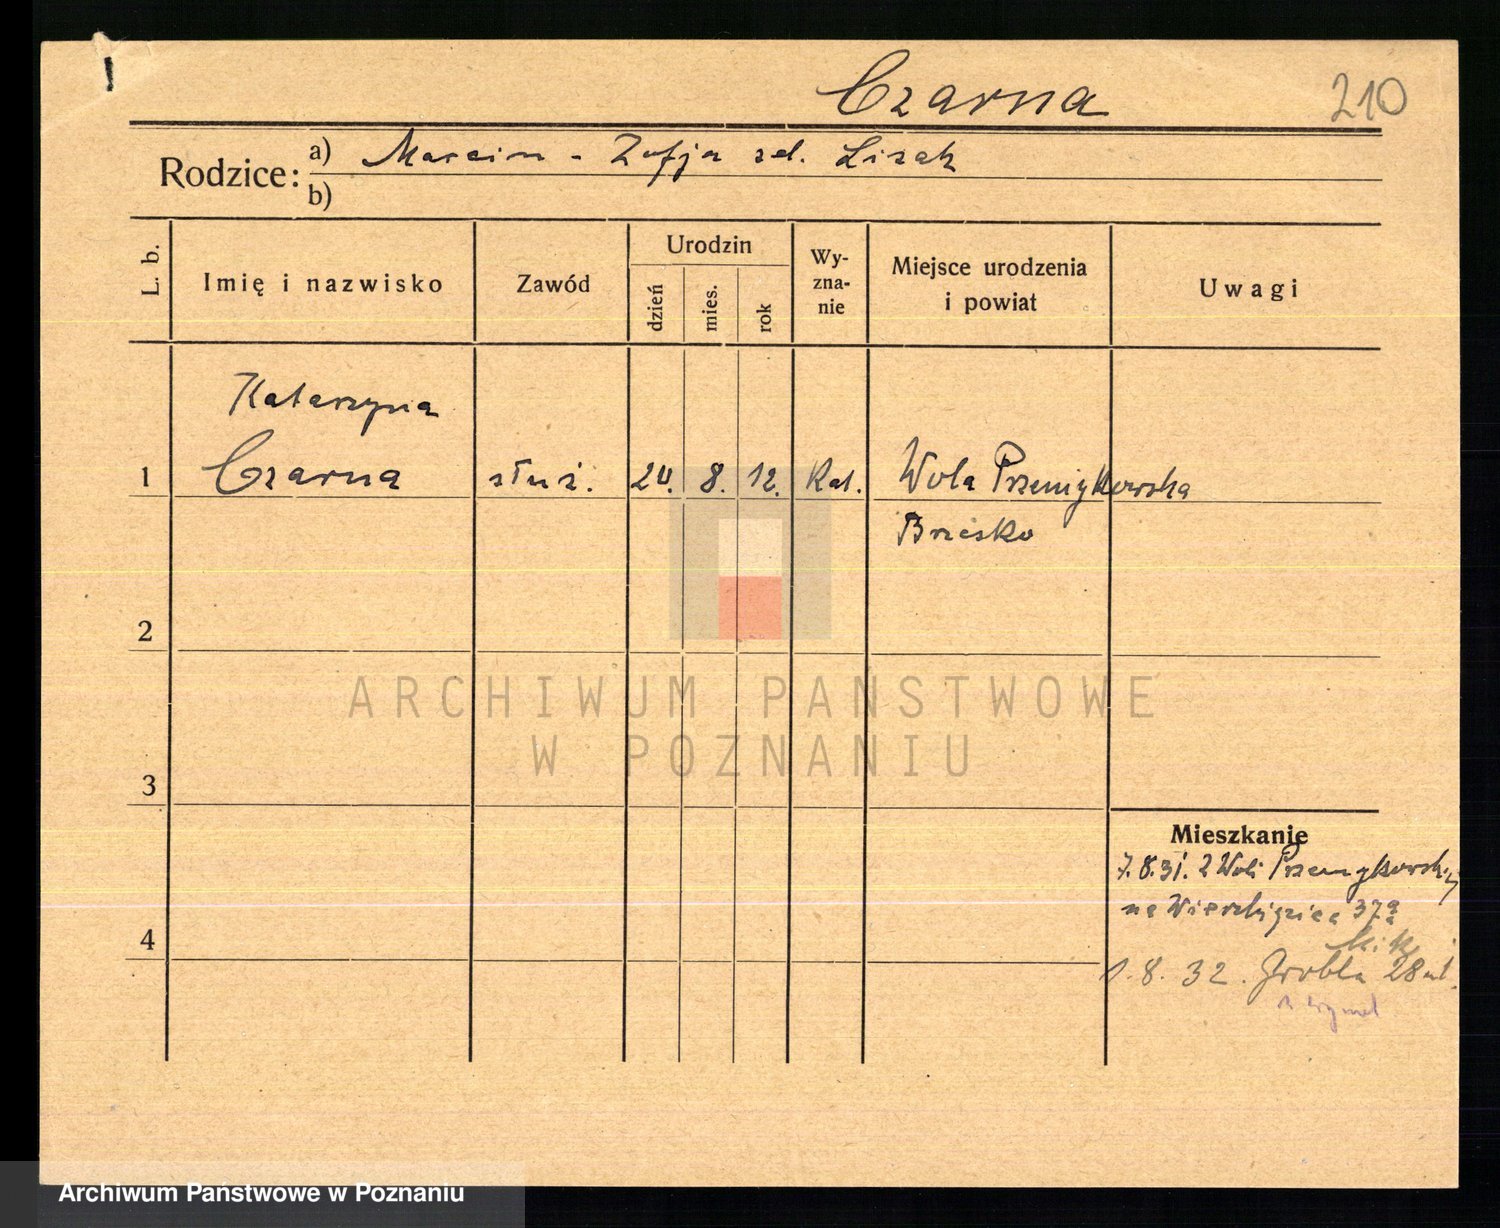 Czarna
210
Rodzice:
a) Marcin - Zofja zd. Lizak
b)
L. b.
Imię i nazwisko
Zawód
Urodzin
dzień
mies.
rok
Wy-
zna-
nie
Miejsce urodzenia
i powiat
Uwagi
Katarzyna
1 Czarna służ. 20. 8. 12. Kat. Wola Przemykowska
Brzesko
2
ARCHIWUM PAŃSTWOWE
W POZNANIU
3
Mieszkanie
7.8.31. z Woli Przemykowskiej
na Wierzbięcice 37a
4
1.8.32. Grobla 28
Archiwum Państwowe w Poznaniu